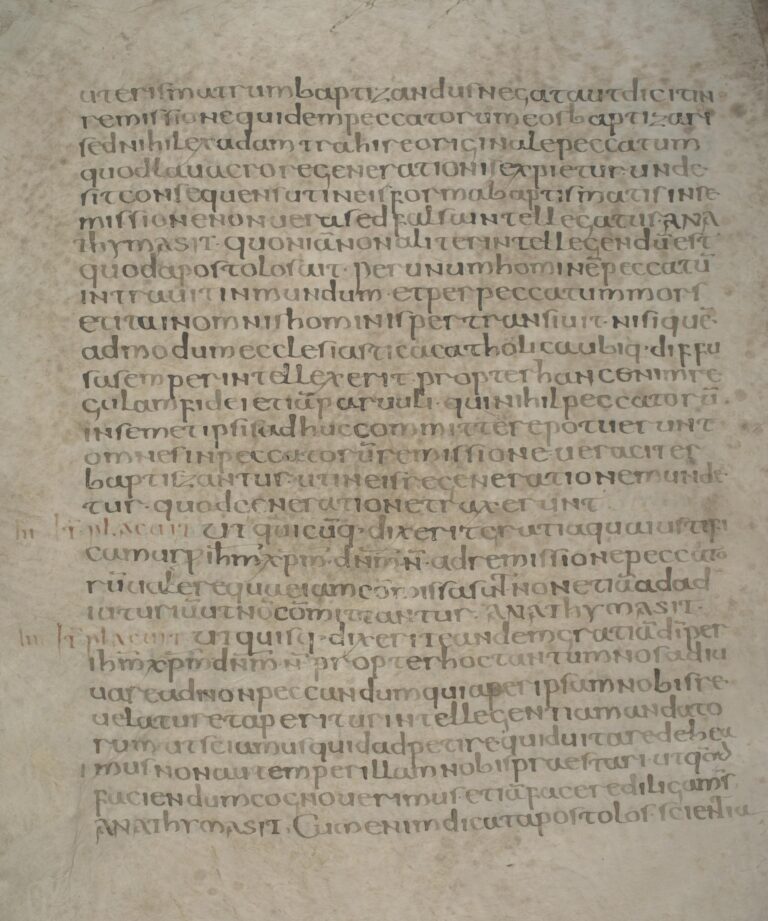 uterismatrumbaptizandusnegatautdicitin
remissionequidempeccatorumeosbaptizari
sednihilexadamtrahireoriginalepeccatum
quodlauacroregenerationisexpietur·unde
sitconsequensutineisformabaptismatisinre
missionenonuerasedfalsaintellegatur·ANA
ThYMASIT·quoniānonaliterintellegendūest
quodapostolosait·perunumhominēpeccatū
intrauitinmundum·etperpeccatummors
etitainomnishominispertransiuit·nisiquē
admodumecclesiasticacatholicaubiq·diffu
sasemperintellexerit·propterhancenimre
gulamfideietiāparuuli·quinihilpeccatorū
insemetipsisadhuccommitterepotuerunt
omnesinpeccatorūremissioneueraciter
baptizantur·utineisregenerationemunde
tur·quodgenerationetraxerunt
iii Itplacuit utquicūq·dixeritgratiaquaiustifi
camurp ihm̄xpm̄·dn̄m̄n̄·adremissionepeccato
rūualerequaeiamcōmissasūtnonetiāadad
iuturiūutnōcōmittantur·ANAThYMASIT·
iiii Itplacuit utquisq·dixeriteandemgratiādīper
ihm̄xpm̄dn̄m̄n̄propterhoctantumnosadiu
uareadnonpeccandumquiaperipsamnobisre
uelaturetaperiturintellegentiamandato
rumutsciamusquidadpetirequiduitaredebea
musnonautemperillamnobispraestariutqōd
faciendumcognouerimus·etiāfacerediligam̄s
ANAThYMASIT. Cumenimdicatapostolos·scientia